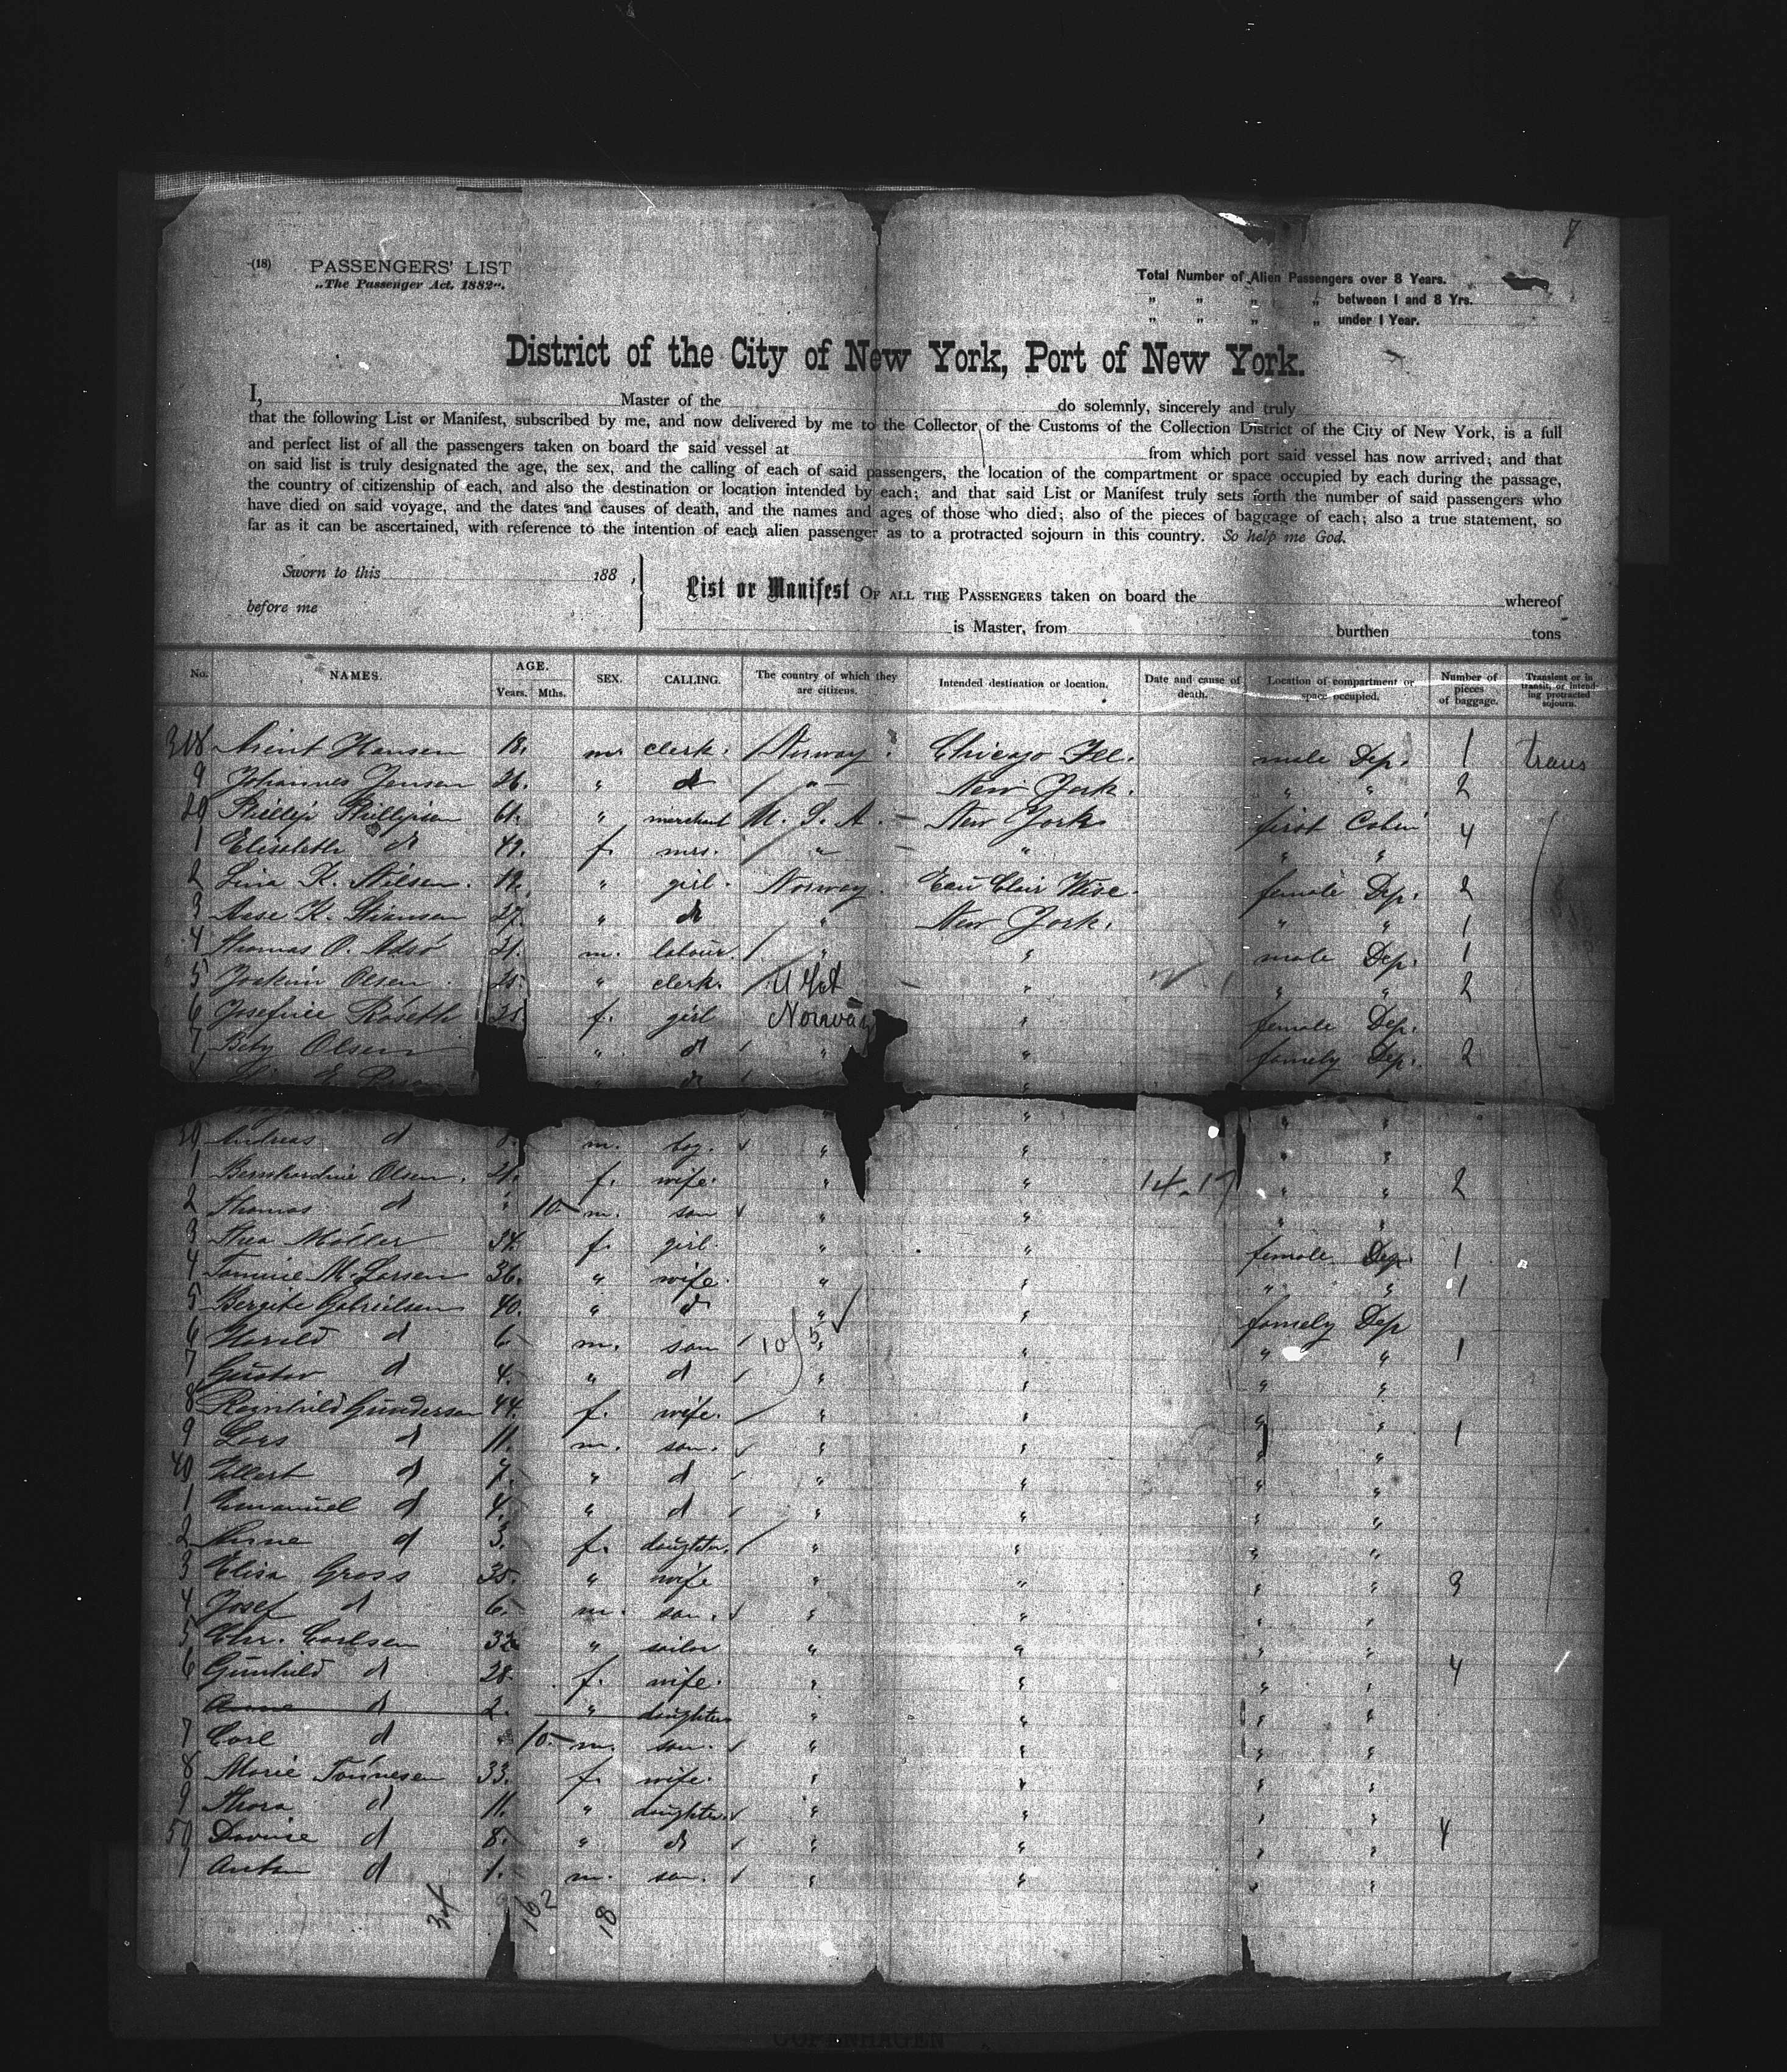 7
(18) PASSENGERS' LIST
„The Passenger Act. 1882".
Total Number of Alien Passengers over 8 Years.
„ „ „ „ between 1 and 8 Yrs.
„ „ „ „ under 1 Year.
District of the City of New York, Port of New York.
I, Master of the do solemnly, sincerely and truly
that the following List or Manifest, subscribed by me, and now delivered by me to the Collector of the Customs of the Collection District of the City of New York, is a full
and perfect list of all the passengers taken on board the said vessel at from which port said vessel has now arrived; and that
on said list is truly designated the age, the sex, and the calling of each of said passengers, the location of the compartment or space occupied by each during the passage,
the country of citizenship of each, and also the destination or location intended by each; and that said List or Manifest truly sets forth the number of said passengers who
have died on said voyage, and the dates and causes of death, and the names and ages of those who died; also of the pieces of baggage of each; also a true statement, so
far as it can be ascertained, with reference to the intention of each alien passenger as to a protracted sojourn in this country. So help me God.
Sworn to this 188 ,
before me
List or Manifest OF ALL THE PASSENGERS taken on board the whereof
is Master, from burthen tons
No. NAMES. AGE. Years. Mths. SEX. CALLING. The country of which they are citizens. Intended destination or location. Date and cause of death. Location of compartment or space occupied. Number of pieces of baggage. Transient or in transit, or intending protracted sojourn.
318 Hansen 18. m. clerk. Norway. Chicago Ill. male Dep. 1 trans
9 Johannes Jensen 26. " d " New York. " " 2
20 Phillip Phillipsen 61. " merchant U. S. A. New York first Cabin 4
1 Elisabeth d 49. f. mrs. " " " "
2 Lina K. Nilsen. 19. " girl. Norway. Eau Clair Wisc. female Dep. 2
3 Aase K. 27. " d " New York. " " 1
4 Thomas O. 21. m. labour. " " male Dep. 1
5 Joakim Olsen 25. " clerk. " " " 2
6 Josefine Roseth 25. f. girl Norway " female Dep.
7 Bety Olsen " d " " famely Dep. 2
29 Andreas d 8. m. boy. " " " "
1 Bernhardine Olsen. 21. f. wife. " " 14-17 " " 2
2 Thomas d " 10 m. son " " " "
3 Thea Möller 34. f. girl. " " female Dep. 1
4 M. Larsen 36. " wife. " " " " 1
5 Bergite Gabrielsen 40. " d " " famely Dep
6 Harald d 6 m. son 10/5 " " " " 1
7 Gustav d 4. " d " " " "
8 Regnhild Gundersen 44. f. wife. " " " "
9 Lars d 11. m. son. " " " " 1
40 Ellert d 7. " d " " " "
1 Emanuel d 4. " d " " " "
2 Anne d 3. f. daughter. " " " "
3 Elisa Gross 35. " wife " " " " 3
4 Josef d 6. m. son. " " " "
5 Chr. Carlsen 32 " sailor " " " "
6 Gunhild d 28. f. wife. " " " " 4
Anne d 2. " daughter " " " "
7 Carl d " 10. m. son. " " " "
8 Marie Tönnesen 33. f. wife. " " " "
9 Thora d 11. " daughter. " " " "
50 Davine d 8. " d " " " " 4
1 Anton d 1. m. son. " " " "
34 16 2 18
COPENHAGEN